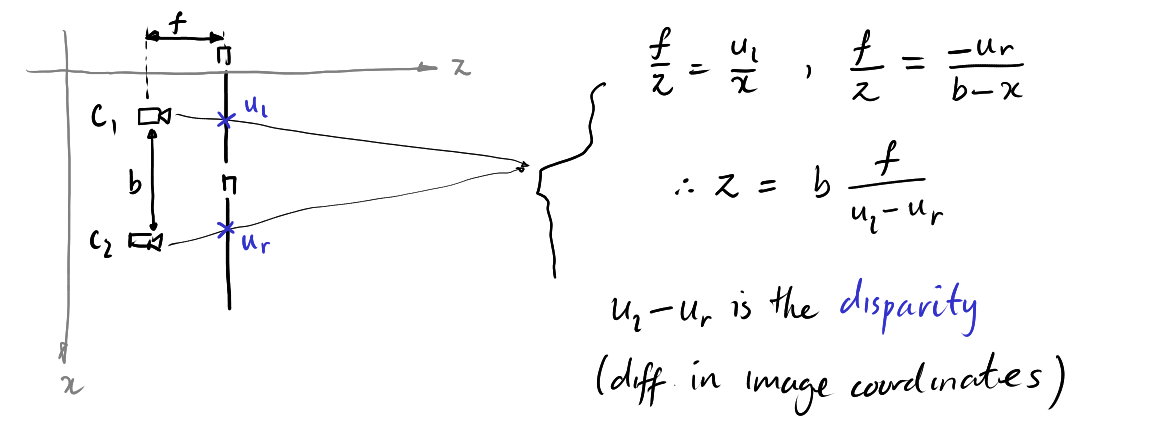 f
Π
z
C₁
u_l
b
Π
C₂
u_r
x
f/z = u_l/x , f/z = -u_r/(b-x)
∴ z = b f/(u_l - u_r)
u_l - u_r is the disparity
(diff in image coordinates)